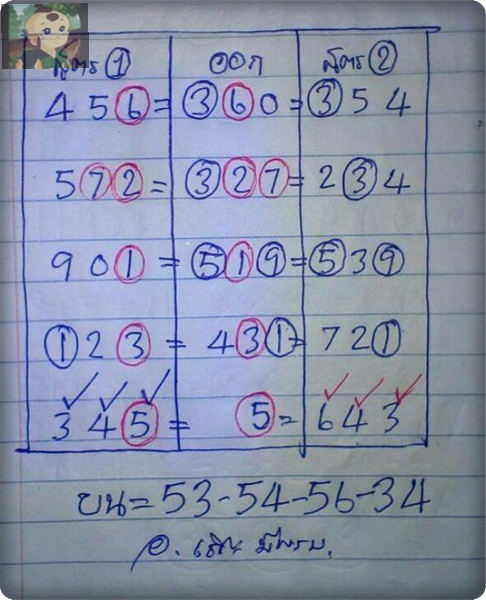 สูตร ① ออก สูตร ②
4 5 6 = 3 6 0 = 3 5 4
5 7 2 = 3 2 7 = 2 3 4
9 0 1 = 5 1 9 = 5 3 9
1 2 3 = 4 3 1 = 7 2 1
3 4 5 = 5 = 6 4 3
บน = 53-54-56-34
อ.